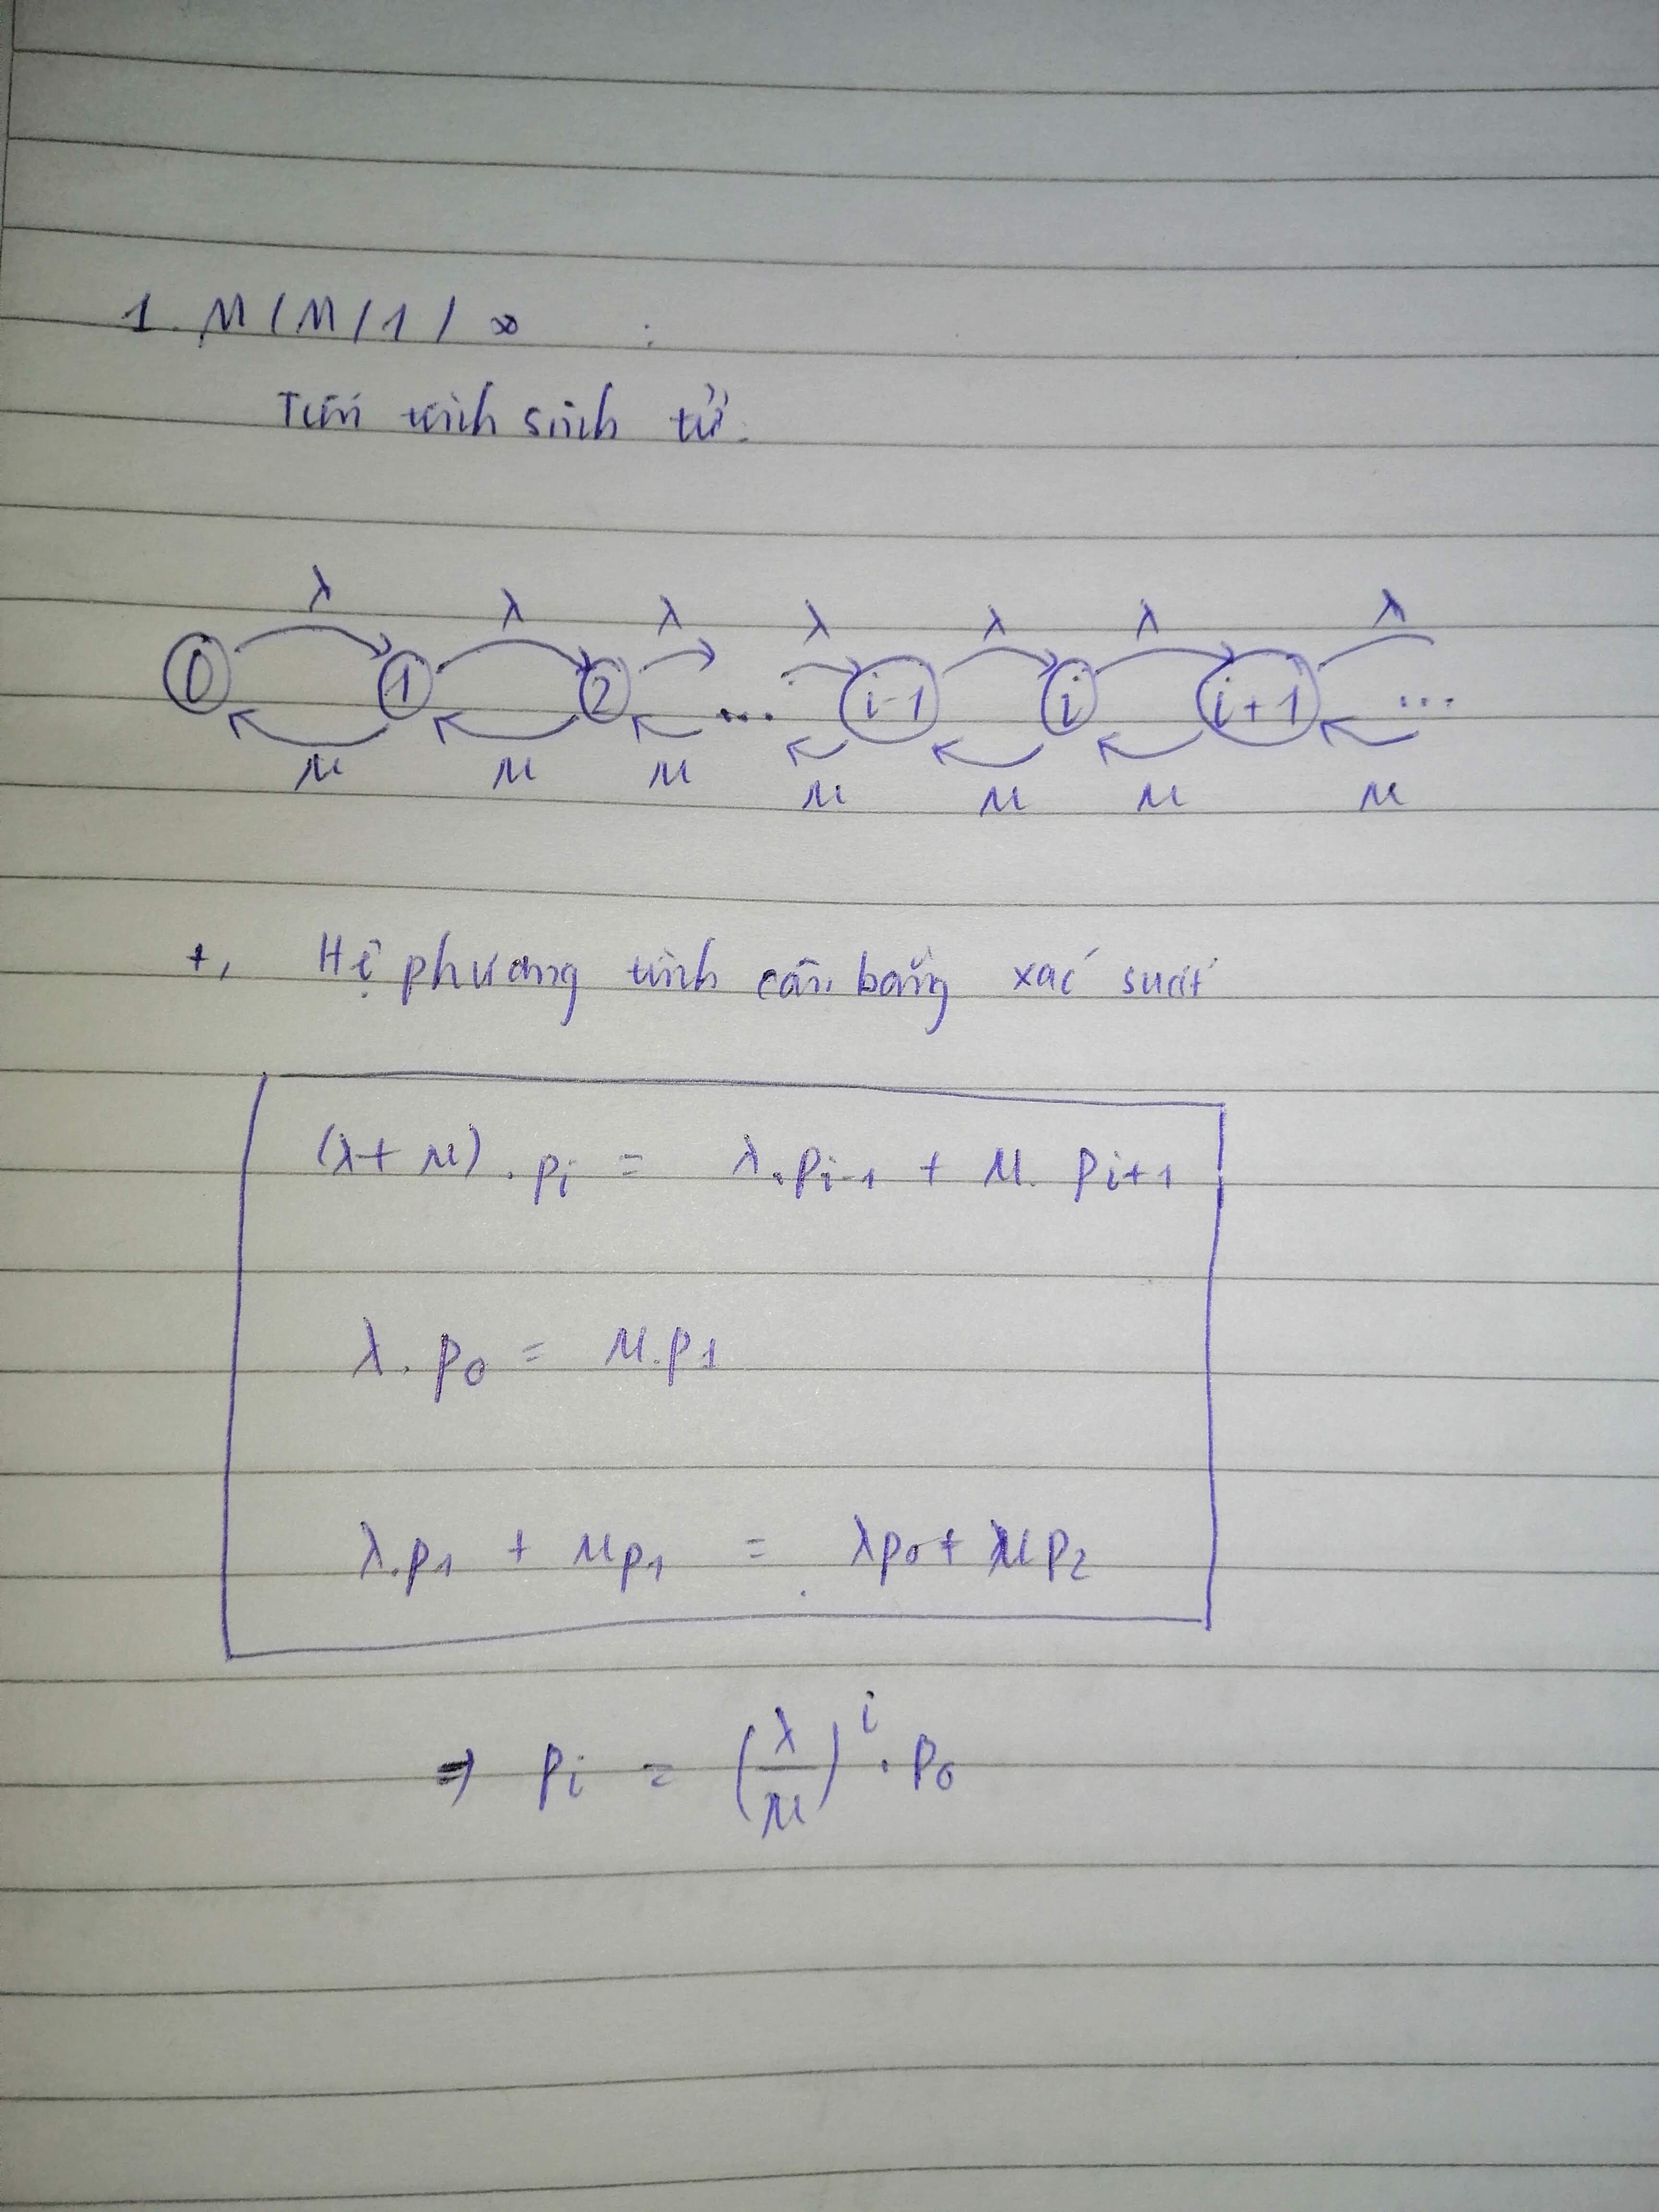 1. M/M/1/∞ :
Tiến trình sinh tử.
λ λ λ λ λ λ λ
0 1 2 ... i-1 i i+1 ...
μ μ μ μ μ μ μ
+, Hệ phương trình cân bằng xác suất
(λ+μ).pi = λ.pi-1 + μ.pi+1
λ.p0 = μ.p1
λ.p1 + μp1 = λp0 + μp2
⇒ pi = (λ/μ)^i . p0